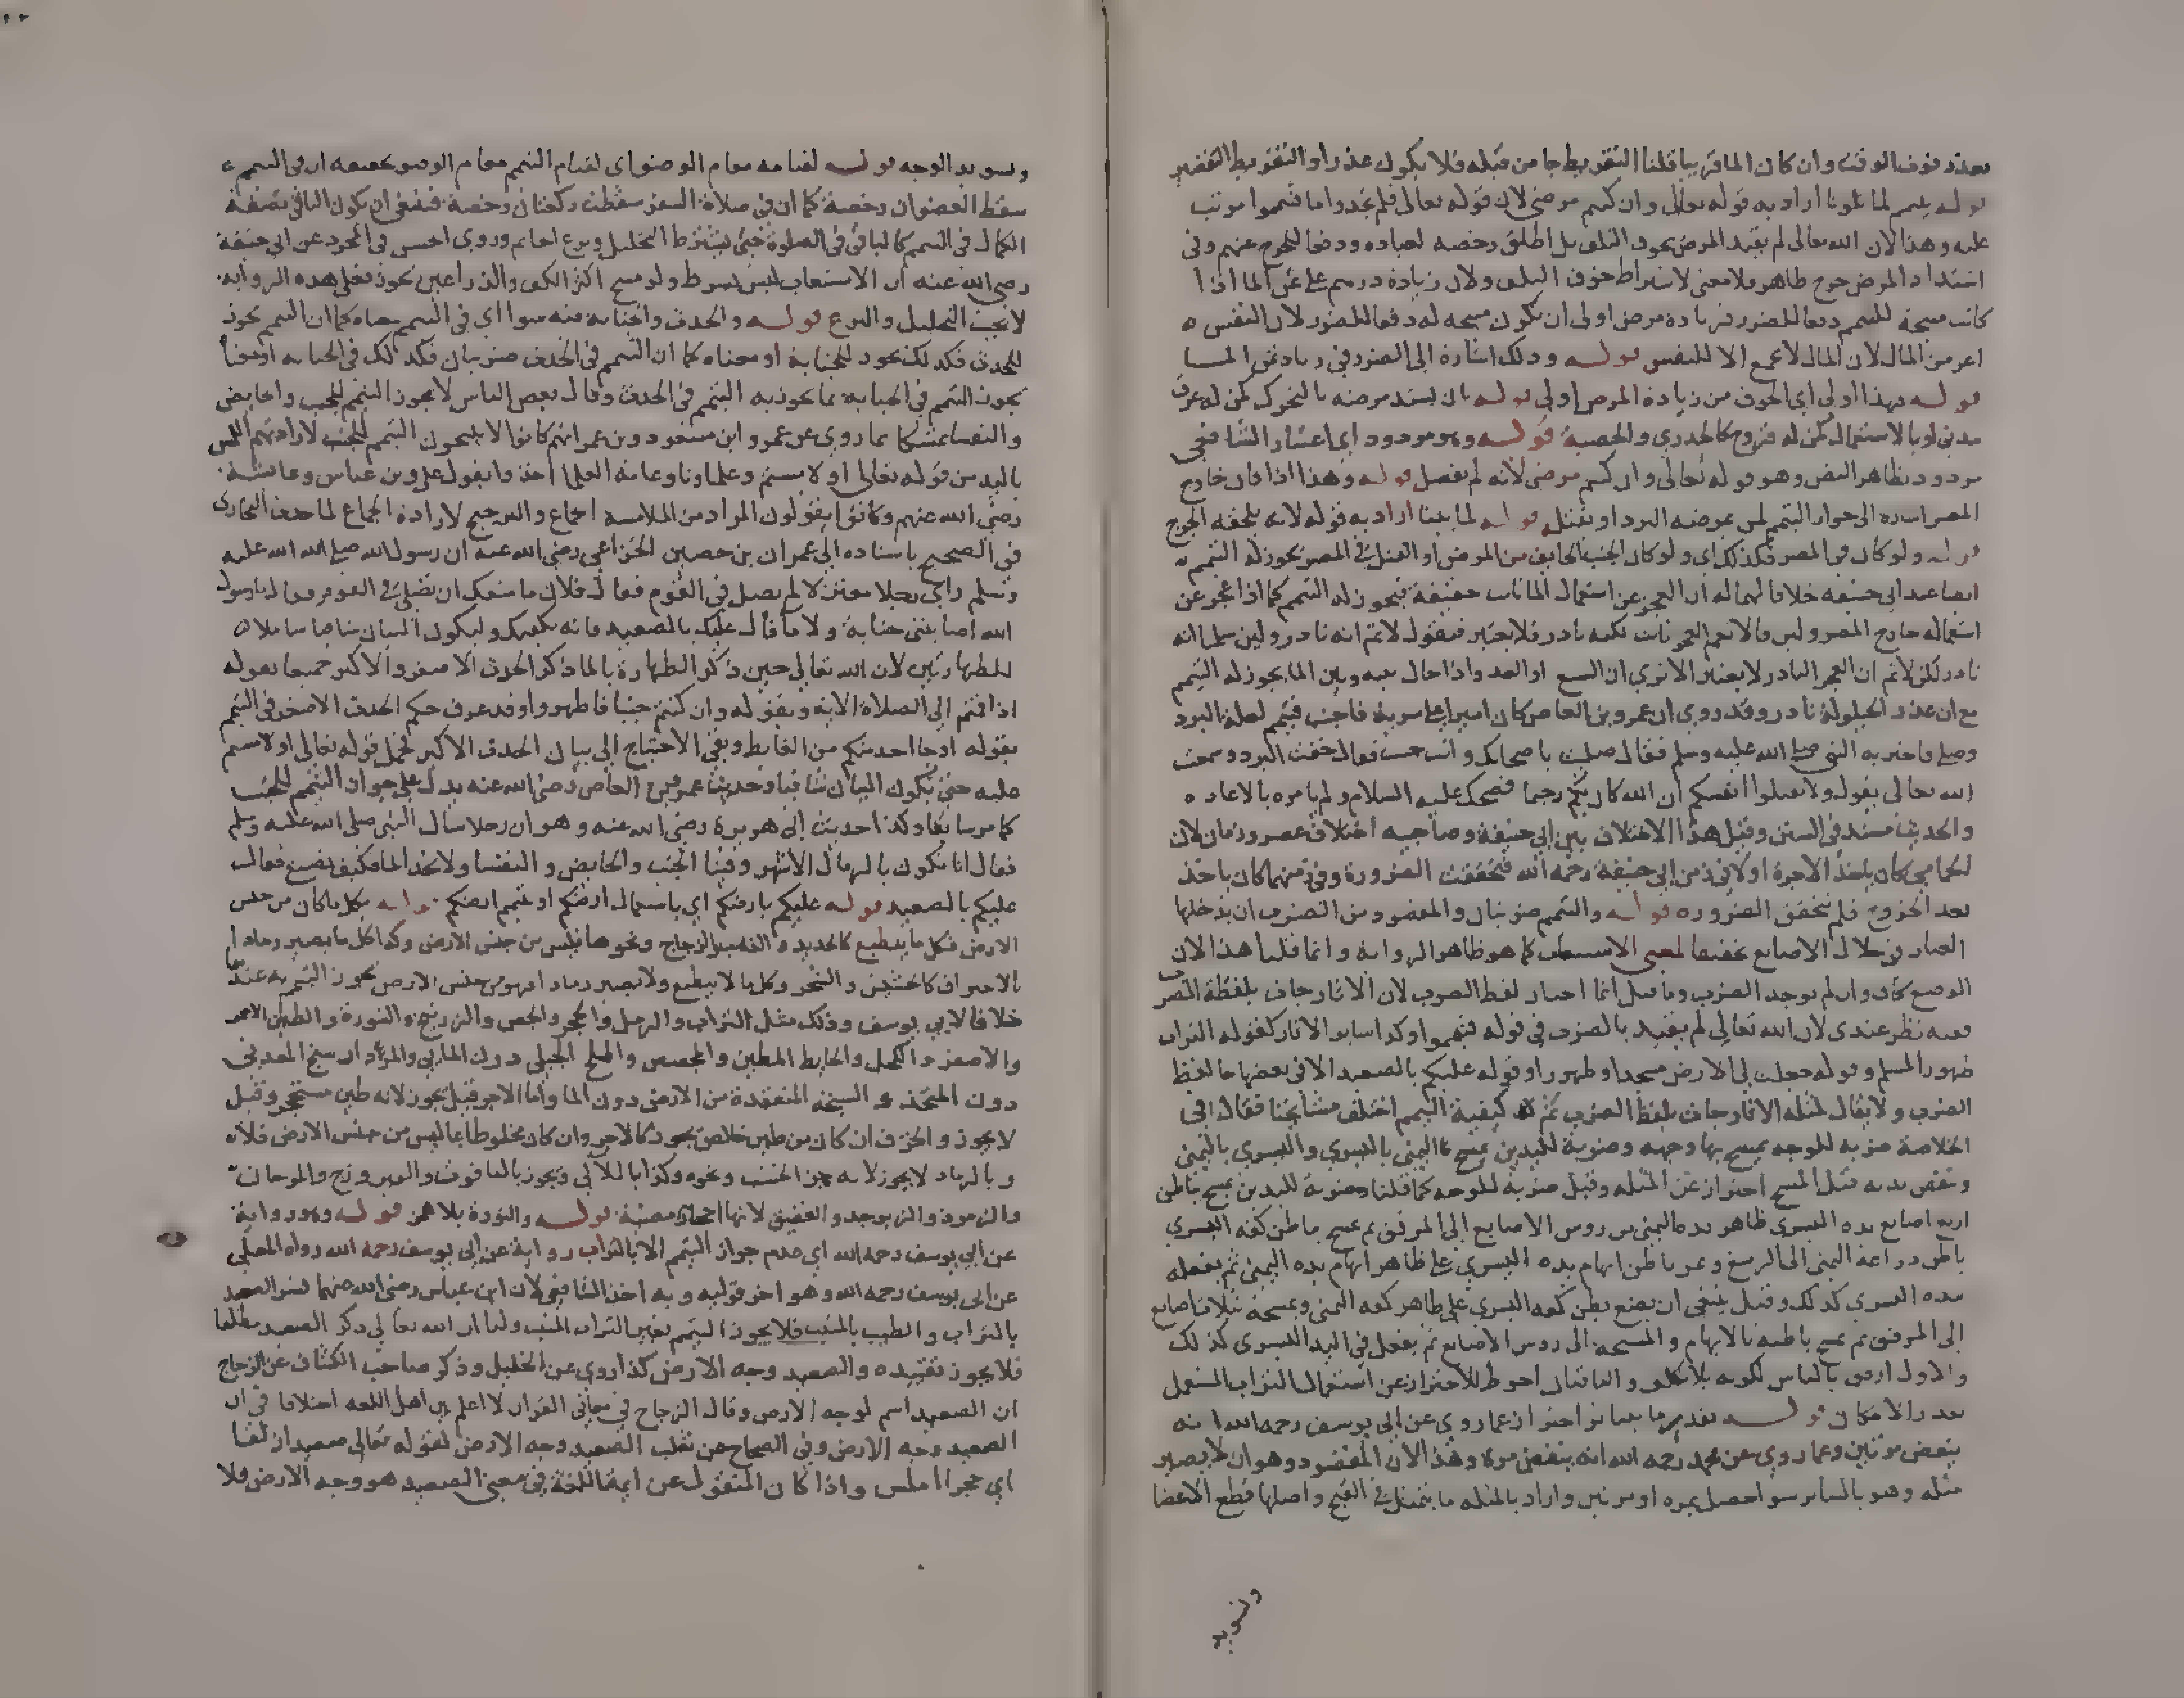 بعذر فوت الوقت وان كان الما قريبا قلنا التفريط جا من قبله فلا يكون عذرا والتفريط التقصير
قوله يتيمم لما تلونا اراد به قوله تعالى وان كنتم مرضى لان قوله تعالى فلم تجدوا ما فتيمموا مرتب
عليه وهذا لان الله تعالى لم يقيد المرض بخوف التلف بل اطلق رخصه لعباده ودفعا للحرج عنهم وفي
اشتداد المرض حرج ظاهر فلا معنى لاشتراط خوف التلف ولان زيادة درهم على ثمن الما اذا
كانت مبيحة للتيمم دفعا للضرر فزيادة مرض اولى ان يكون مبيحه له دفعا للضرر لان النفس
اعز من المال لان المال لا يجمع الا للنفس قوله وذلك اشارة الى الضرر في زيادة ثمن الما
قوله فهذا اولى اي الخوف من زيادة المرض اولى قوله بان يشتد مرضه بالتحرك كمن له عرق
مدني او بالاستعمال كمن له قروح كالجدري والحصبة قوله وهو مردود اي اعتبار الشافعي
مردود بظاهر النص وهو قوله تعالى وان كنتم مرضى لانه لم يفصل قوله وهذا اذا كان خارج
المصر اشاره الى جواز التيمم لمن يمرضه البرد او يقتل قوله لما بينا اراد به قوله لانه يلحقه الحرج
قوله ولو كان في المصر فكذلك اي ولو كان الجنب الخايف من المرض او القتل في المصر يجوز له التيمم
ايضا عند ابي حنيفه خلافا لهما له ان العجز عن استعمال الما ثابت حقيقة فيجوز له التيمم كما اذا عجز عن
استعماله خارج المصر وليس قالا نعم العجز ثابت لكنه نادر فلا يعتبر فنقول لا نم انه نادر ولين سلمنا انه
نادر لكن لا نم ان العجز النادر لا يعتبر الا ترى ان السبع او العدو اذا حال بينه وبين الما يجوز له التيمم
مع ان عذر الحيلولة نادر وقد روي ان عمرو بن العاص كان اميرا على سرية فاجنب فتيمم لعلة البرد
وصلى فاخبر به النبي صلى الله عليه وسلم فقال صليت باصحابك وانت جنب فقال خفت البرد وسمعت
الله تعالى يقول ولا تقتلوا انفسكم ان الله كان بكم رحيما فضحك عليه السلام ولم يامره بالاعاده
والحديث مسند في السنن وقيل هذا الاختلاف بين ابي حنيفة وصاحبيه اختلاف عصر وزمان لان
الحمامي كان ياخذ الاجرة اولا في زمن ابي حنيفة رحمه الله فتحققت الضرورة وفي زمنهما كان ياخذ
بعد الخروج فلم تتحقق الضروره قوله والتيمم ضربتان والمقصود من الضرب ان يدخلها
الغبار في خلال الاصابع تحقيقا لمعنى الاستيعاب كما هو ظاهر الرواية وانما قلنا هذا لان
الوضع كاف وان لم يوجد الضرب وما قيل انما اختار لفظ الضرب لان الاثار جات بلفظة الضرب
ففيه نظر عندي لان الله تعالى لم يقيد بالضرب في قوله فتيمموا وكذا ساير الاثار كقوله التراب
طهور المسلم وقوله جعلت لي الارض مسجدا وطهورا وقوله عليكم بالصعيد الا في بعضها جا لفظ
الضرب ولا يقال لمثله الاثار جات بلفظ الضرب ثم كيفية التيمم اختلف مشايخنا فقال في
الخلاصة ضربه للوجه يمسح بها وجهه وضربة لليدين يمسح اليمنى باليسرى واليسرى باليمنى
وينفض يديه قبل المسح احترازا عن المثله وقيل ضربة للوجه كما قلنا وضربة لليدين يمسح بباطن
اربع اصابع يده اليسرى ظاهر يده اليمنى من روس الاصابع الى المرفق ثم يمسح بباطن كفه اليسرى
باطن دراعه اليمنى الى الرسغ ويمر باطن ابهام يده اليسرى على ظاهر ابهام يده اليمنى ثم يفعل
بيده اليسرى كذلك وقيل ينبغي ان يضع بطن كفه اليسرى على ظاهر كفه اليمنى ويمسحه بثلاث اصابع
الى المرفق ثم يمسح باطنه بالابهام والمسبحه الى روس الاصابع ثم يفعل في اليد اليسرى كذلك
والاول ارفق بالناس لكونه بلا تكلف والثاني احوط للاحتراز عن استعمال التراب المستعمل
بقدر الامكان قوله بقدر ما يتناثر احترازا عما روي عن ابي يوسف رحمه الله انه
ينفض مرتين وعما روي عن محمد رحمه الله انه ينفض مرة وهذا لان المقصود وهو ان لا يصير
مثله وهو بالتناثر سوا حصل بمره او مرتين واراد بالمثله ما يتمثل في القبح واصلها قطع الاعضا
وتسويد
وتسويد الوجه قوله لقيامه مقام الوضو اي لقيام التيمم مقام الوضو تحقيقه ان في التيمم
سقط العضوان رخصة كما ان في صلاة السفر سقطت ركعتان رخصة فينبغي ان يكون الباقي بصفة
الكمال في التيمم كالباقي في الصلوة حتى يشترط التخليل ونزع الخاتم وروى الحسن في المجرد عن ابي حنيفة
رضي الله عنه ان الاستيعاب ليس بشرط ولو مسح اكثر الكف والذراعين يجوز فعلى هذه الرواية
لا يجب التخليل والنزع قوله والحدث والجنابه فيه سوا اي في التيمم معناه كما ان التيمم يجوز
للحدث فكذلك يجوز للجنابة او معناه كما ان التيمم في الحدث ضربتان فكذلك في الجنابه او معناه
يجوز التيمم في الجنابه بما يجوز به التيمم في الحدث وقال بعض الناس لا يجوز التيمم للجنب والحايض
والنفسا تمسكا بما روي عن عمر وابن مسعود وبن عمر انهم كانوا لا يبيحون التيمم للجنب لارادتهم المس
باليد من قوله تعالى او لامستم وعلماونا وعامة العلما اخذوا بقول علي وبن عباس وعائشة
رضي الله عنهم وكانوا يقولون المراد من الملامسة الجماع والترجيح لارادة الجماع لما حدث البخاري
في الصحيح باسناده الى عمران بن حصين الخزاعي رضي الله عنه ان رسول الله صلى الله عليه
وسلم راى رجلا معتزلا لم يصل في القوم فقال فلان ما منعك ان تصلي في القوم فقال يا رسول
الله اصابتني جنابة ولا ما قال عليك بالصعيد فانه يكفيك وليكون البيان شاملا
للطهارتين لان الله تعالى حين ذكر الطهارة بالما ذكر الحدث الاصغر والاكبر جميعا بقوله
اذا قمتم الى الصلاة الاية وبقوله وان كنتم جنبا فاطهروا وقد عرف حكم الحدث الاصغر في التيمم
بقوله او جا احد منكم من الغايط وبقي الاحتياج الى بيان الحدث الاكبر فحمل قوله تعالى او لامستم
عليه حتى يكون البيان شافيا وحديث عمرو بن العاص رضي الله عنه يدل على جواز التيمم للجنب
كما مر سابقا وكذا حديث ابي هريرة رضي الله عنه وهو ان رجلا سال النبي صلى الله عليه وسلم
فقال انا نكون بالرمال الاشهر وفينا الجنب والحايض والنفسا ولا نجد الما فكيف نصنع فقال
عليكم بالصعيد قوله عليكم بارضكم اي باستعمال ارضكم او تيمم ارضكم قوله بكل ما كان من جنس
الارض فكل ما ينطبع كالحديد والذهب والزجاج ونحوها فليس من جنس الارض وكذا كل ما يصير رمادا
بالاحتراق كالحشيش والشجر وكل ما لا ينطبع ولا يصير رمادا فهو من جنس الارض يجوز التيمم به عندنا
خلافا لابي يوسف وذلك مثل التراب والرمل والحجر والجص والزرنيخ والنورة والطين الاحمر
والاصفر والكحل والحايط المطين والمجصص والملح الجبلي دون المايي والمرداسنج المعدني
دون المتخذ والسبخه المنعقدة من الارض دون الما واما الاجر فقيل يجوز لانه طين مستحجر وقيل
لا يجوز والخزف ان كان من طين خالص يجوز كالاجر وان كان مخلوطا بما ليس من جنس الارض فلا
وبالرماد لا يجوز لانه من الخشب ونحوه وكذا باللآلي ويجوز بالياقوت والفيروزج والمرجان
والزمرد والزبرجد والعقيق لانها احجار مضية قوله والنورة بلا همز قوله وهو رواية
عن ابي يوسف رحمه الله اي عدم جواز التيمم الا بالتراب رواية عن ابي يوسف رحمه الله رواه المعلى
عن ابي يوسف رحمه الله وهو اخر قوليه وبه اخذ الشافعي لان ابن عباس رضي الله عنهما فسر الصعيد
بالتراب والطيب بالمنبت فلا يجوز التيمم بغير التراب المنبت ولنا ان الله تعالى ذكر الصعيد مطلقا
فلا يجوز تقييده والصعيد وجه الارض كذا روي عن الخليل وذكر صاحب الكشاف عن الزجاج
ان الصعيد اسم لوجه الارض وقال الزجاج في معاني القران لا اعلم بين اهل اللغه اختلافا في ان
الصعيد وجه الارض وفي الصحاح عن ثعلب الصعيد وجه الارض لقوله تعالى صعيدا زلقا
اي حجرا املس واذا كان المنقول عن ايمة اللغة في معنى الصعيد هو وجه الارض فلا